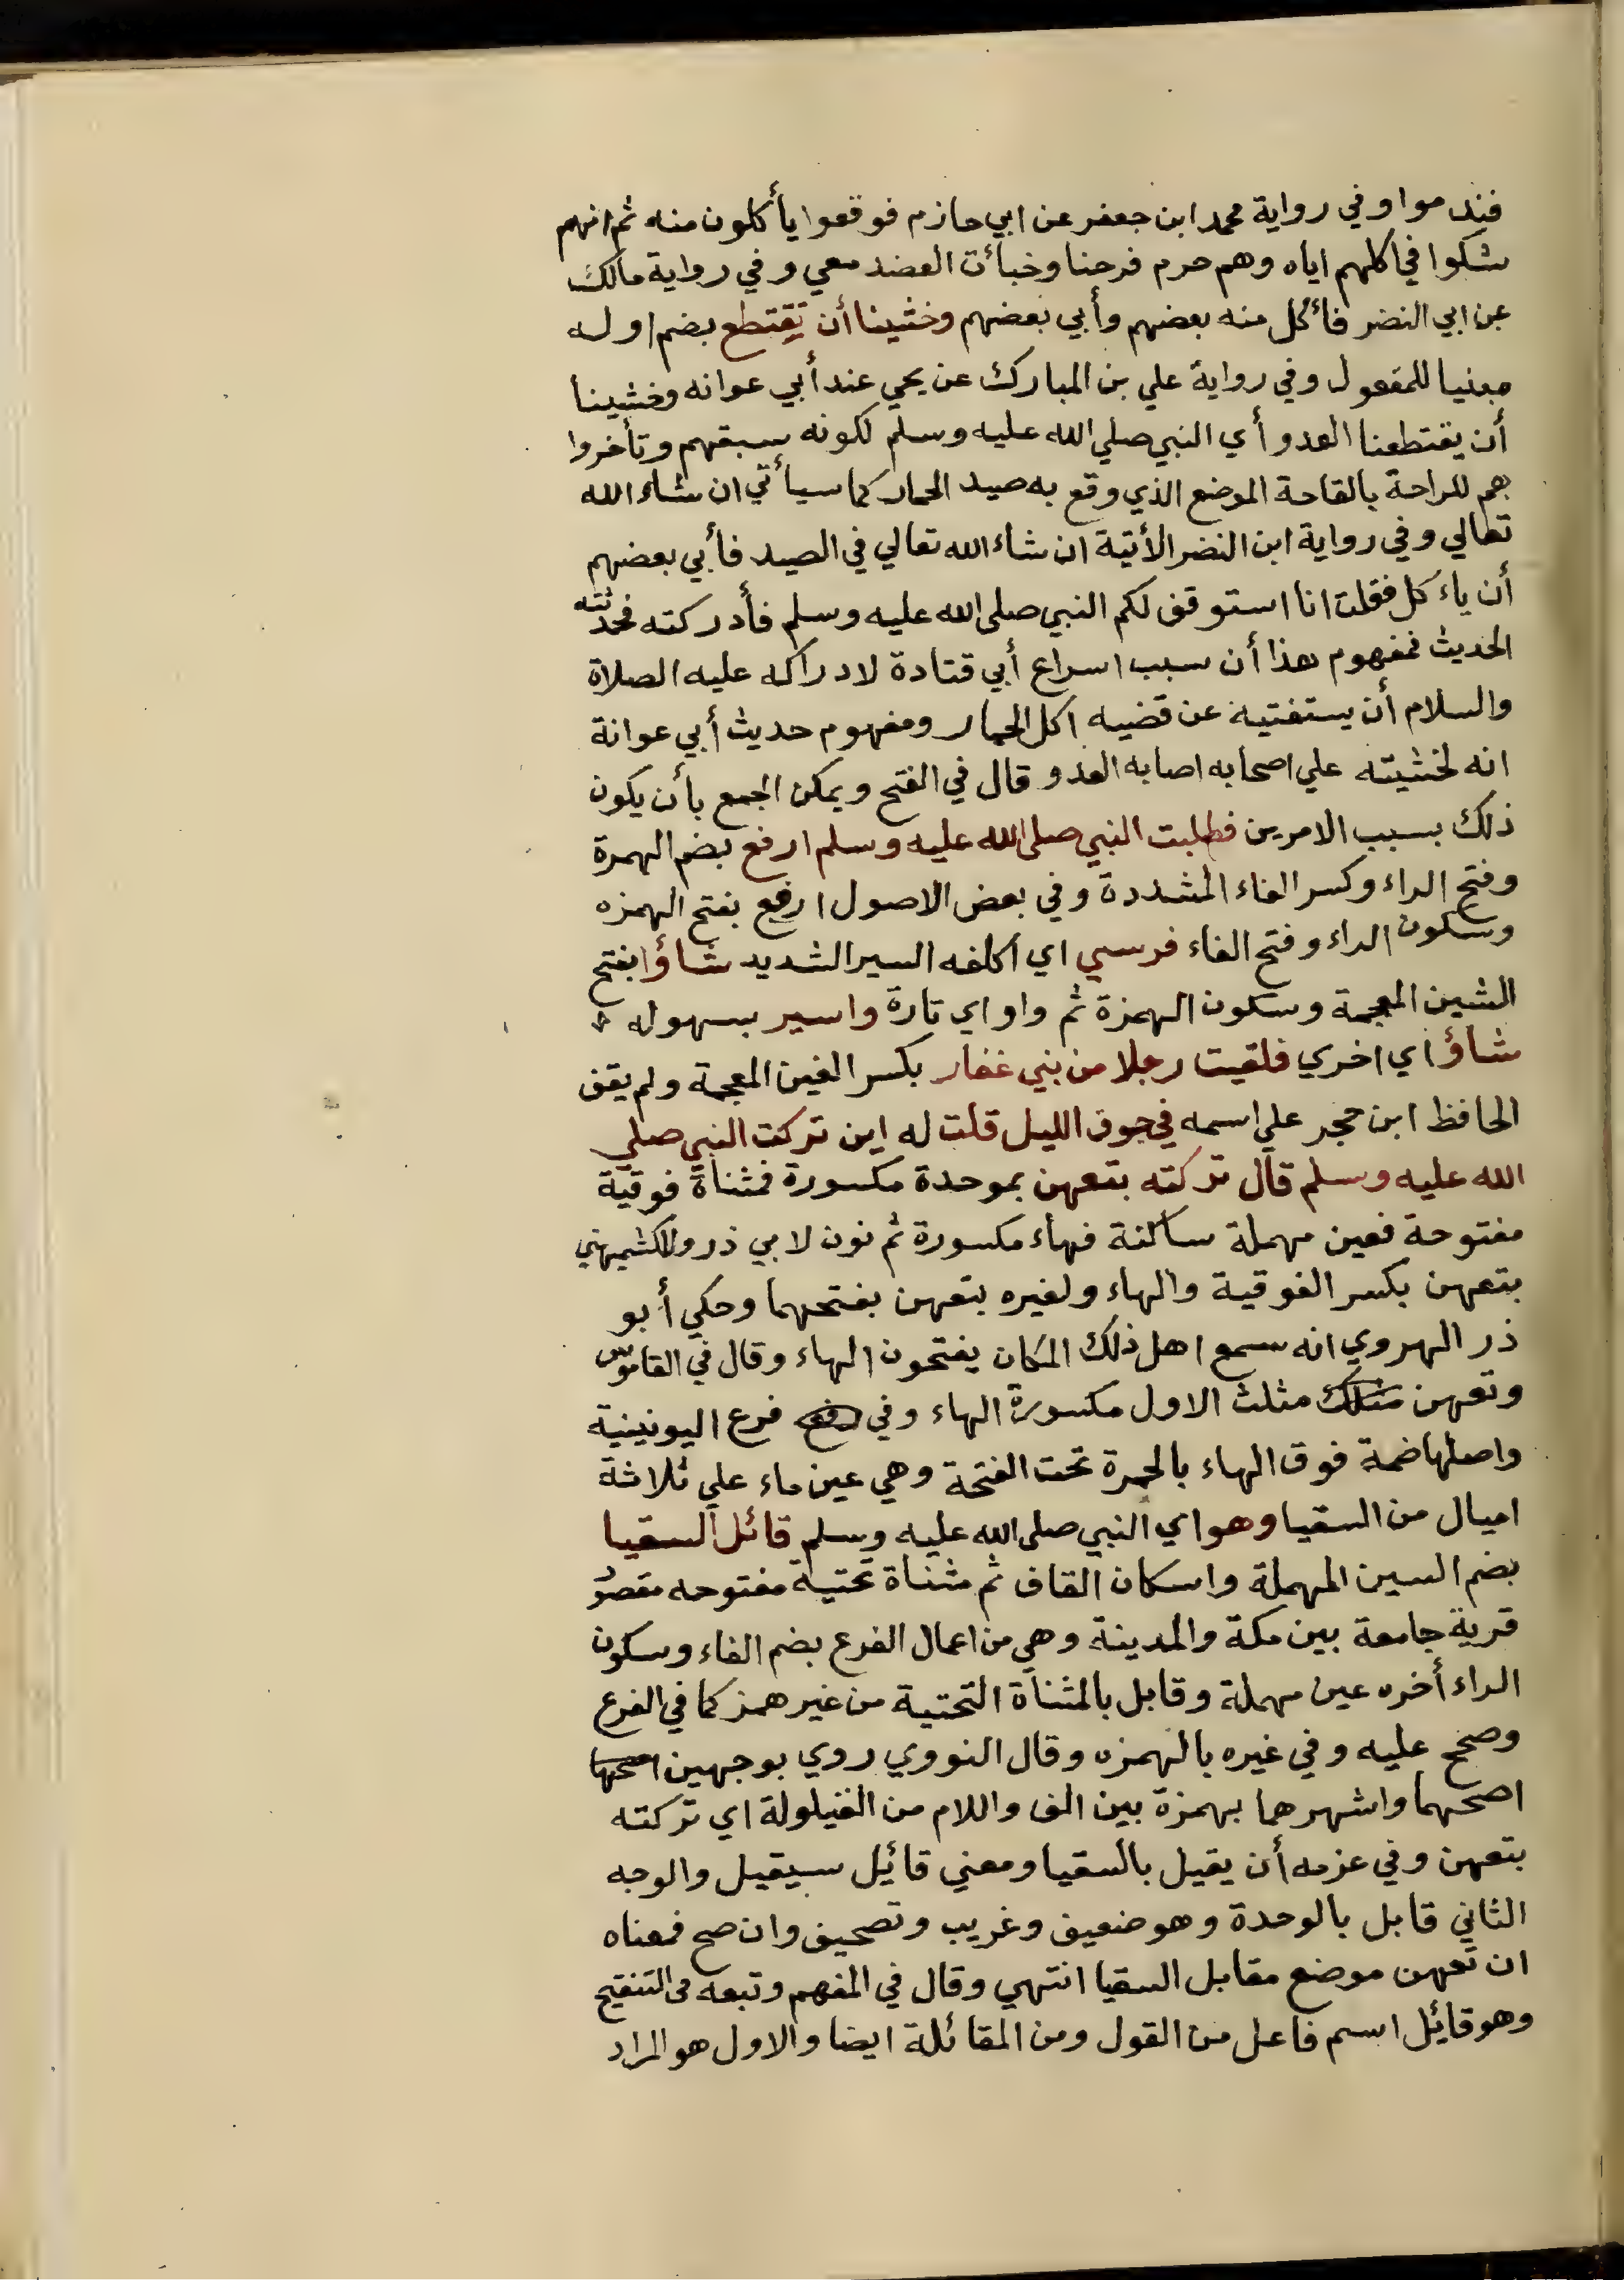 فندموا وفي رواية محمد ابن جعفر عن ابي حازم فوقعوا يأكلون منه ثم انهم
شكوا في اكلهم اياه وهم حرم فرحنا وخبأت العضد معي وفي رواية مالك
عن ابي النضر فأكل منه بعضهم وأبي بعضهم وخشينا أن نقتطع بضم اوله
مبنيا للمفعول وفي رواية علي بن المبارك عن يحي عند أبي عوانه وخشينا
أن يقتطعنا العدو أي النبي صلي الله عليه وسلم لكونه سبقهم وتأخروا
هم للراحة بالقاحة الموضع الذي وقع به صيد الحمار كما سيأتي ان شاء الله
تعالي وفي رواية ابن النضر الأتية ان شاء الله تعالي في الصيد فأبي بعضهم
أن ياءكل فقلت انا استوقف لكم النبي صلي الله عليه وسلم فأدركته فحدثته
الحديث فمفهوم هذا أن سبب اسراع أبي قتادة لادراكه عليه الصلاة
والسلام أن يستفتيه عن قضيه اكل الحمار ومفهوم حديث أبي عوانة
انه لخشيته علي اصحابه اصابه العدو قال في الفتح ويمكن الجمع بأن يكون
ذلك بسبب الامرين فطلبت النبي صلي الله عليه وسلم ارفع بضم الهمزة
وفتح الراء وكسر الفاء المشددة وفي بعض الاصول ارفع بفتح الهمزه
وسكون الراء وفتح الفاء فرسي اي اكلفه السير الشديد شاؤا بفتح
الشين المعجمة وسكون الهمزة ثم واو اي تارة واسير بسهوله
شاؤا اي اخري فلقيت رجلا من بني غفار بكسر الغين المعجمة ولم يقف
الحافظ ابن حجر علي اسمه في جوف الليل قلت له اين تركت النبي صلي
الله عليه وسلم قال تركته بتعهن بموحدة مكسورة فمثناة فوقية
مفتوحة فعين مهملة ساكنة فهاء مكسورة ثم نون لابي ذر وللكشميهني
بتعهن بكسر الفوقية والهاء ولغيره بتعهن بفتحهما وحكي أبو
ذر الهروي انه سمع اهل ذلك المكان يفتحون الهاء وقال في القاموس
وتعهن مثلث الاول مكسورة الهاء وفي فرع اليونينية
واصلها ضمة فوق الهاء بالحمرة تحت الفتحة وهي عين ماء علي ثلاثة
اميال من السقيا وهو اي النبي صلي الله عليه وسلم قائل السقيا
بضم السين المهملة واسكان القاف ثم مثناة تحتية مفتوحه مقصور
قرية جامعة بين مكة والمدينة وهي من اعمال الفرع بضم الفاء وسكون
الراء أخره عين مهملة وقايل بالمثناة التحتية من غير همز كما في الفرع
وصحح عليه وفي غيره بالهمزه وقال النووي روي بوجهين
اصحهما واشهرهما بهمزة بين الف واللام من القيلولة اي تركته
بتعهن وفي عزمه أن يقيل بالسقيا ومعني قائيل سيقيل والوجه
الثاني قابل بالوحدة وهو ضعيف وغريب وتصحيف وان صح فمعناه
ان تعهن موضع مقابل السقيا انتهي وقال في المفهم وتبعه في التنقيح
وهو قائيل اسم فاعل من القول ومن المقائلة ايضا والاول هو المراد